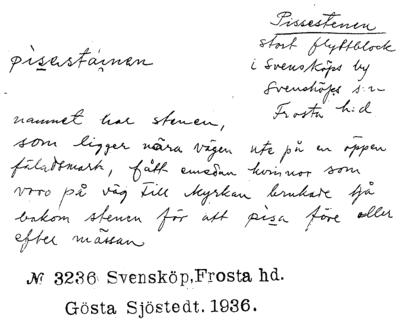 Pissestenen
stort flyttblock
i Svensköps by
Svensköps s:n
Frosta h:d
pisastainen
namnet har stenen,
som ligger nära vägen ute på en öppen
fäladsmark, fått emedan kvinnor som
voro på väg till kyrkan brukade gå
bakom stenen för att pisa före eller
efter mässan
№ 3236 Svensköp, Frosta hd.
Gösta Sjöstedt. 1936.